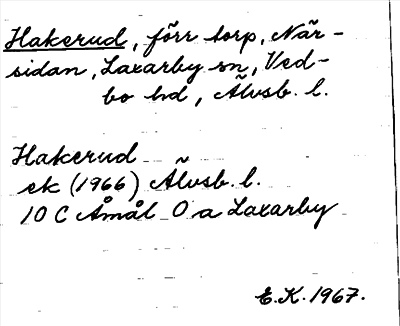 Hakerud, förr torp, När-
sidan, Laxarby sn, Ved-
bo hd, Älvsb. l.
Hakerud
ek (1966) Älvsb. l.
10 C Åmål 0 a Laxarby
E.K. 1967.